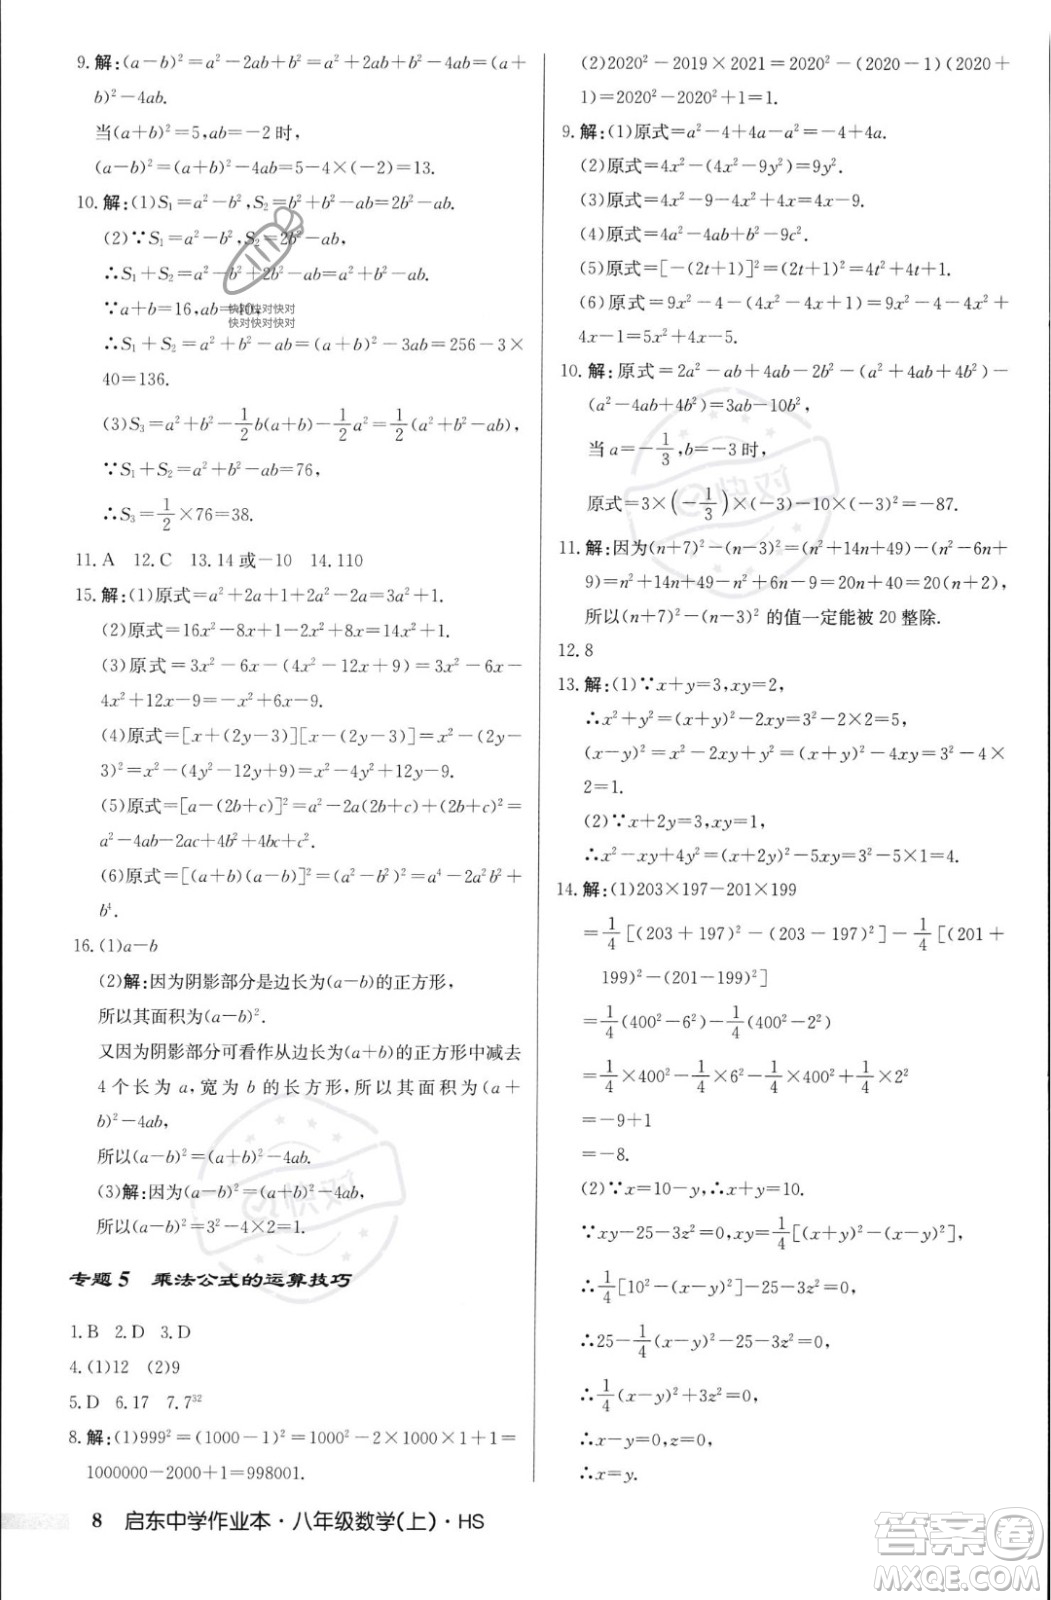 9.解:(a－b)²＝a²－2ab＋b²＝a²＋2ab＋b²－4ab＝(a＋
b)²－4ab.
当(a＋b)²＝5,ab＝－2时,
(a－b)²＝(a＋b)²－4ab＝5－4×(－2)＝13.
10.解:(1)S₁＝a²－b²,S₂＝b²＋b²－ab＝2b²－ab.
(2)∵S₁＝a²－b²,S₂＝2b²－ab,
∴S₁＋S₂＝a²－b²＋2b²－ab＝a²＋b²－ab.
∵a＋b＝16,ab＝40,
快对快对快对
快对快对快对
∴S₁＋S₂＝a²＋b²－ab＝(a＋b)²－3ab＝256－3×
40＝136.
(3)S₃＝a²＋b²－1/2b(a＋b)－1/2a²＝1/2(a²＋b²－ab),
∵S₁＋S₂＝a²＋b²－ab＝76,
∴S₃＝1/2×76＝38.
11.A 12.C 13.14或－10 14.110
15.解:(1)原式＝a²＋2a＋1＋2a²－2a＝3a²＋1.
(2)原式＝16x²－8x＋1－2x²＋8x＝14x²＋1.
(3)原式＝3x²－6x－(4x²－12x＋9)＝3x²－6x－
4x²＋12x－9＝－x²＋6x－9.
(4)原式＝[x＋(2y－3)][x－(2y－3)]＝x²－(2y－
3)²＝x²－(4y²－12y＋9)＝x²－4y²＋12y－9.
(5)原式＝[a－(2b＋c)]²＝a²－2a(2b＋c)＋(2b＋c)²＝
a²－4ab－2ac＋4b²＋4bc＋c².
(6)原式＝[(a＋b)(a－b)]²＝(a²－b²)²＝a⁴－2a²b²＋
b⁴.
16.(1)a－b
(2)解:因为阴影部分是边长为(a－b)的正方形,
所以其面积为(a－b)².
又因为阴影部分可看作从边长为(a＋b)的正方形中减去
4个长为a,宽为b的长方形,所以其面积为(a＋
b)²－4ab,
所以(a－b)²＝(a＋b)²－4ab.
(3)解:因为(a－b)²＝(a＋b)²－4ab,
所以(a－b)²＝3²－4×2＝1.
专题5 乘法公式的运算技巧
1.B 2.D 3.D
4.(1)12 (2)9
5.D 6.17 7.7³²
8.解:(1)999²＝(1000－1)²＝1000²－2×1000×1＋1²＝
1000000－2000＋1＝998001.
8 启东中学作业本·八年级数学(上)·HS
(2)2020²－2019×2021＝2020²－(2020－1)(2020＋
1)＝2020²－2020²＋1＝1.
9.解:(1)原式＝a²－4＋4a－a²＝－4＋4a.
(2)原式＝4x²－(4x²－9y²)＝9y².
(3)原式＝4x²－9－4x²＋4x＝4x－9.
(4)原式＝4a²－4ab＋b²－9c².
(5)原式＝[－(2t＋1)]²＝(2t＋1)²＝4t²＋4t＋1.
(6)原式＝9x²－1－(4x²－4x＋1)＝9x²－1－4x²＋
4x－1－3＝5x²＋4x－5.
10.解:原式＝2a²－ab＋4ab－2b²－(a²＋4ab＋4b²)－
(a²－4ab＋4b²)＝3ab－10b²,
当a＝－1/3,b＝－3时,
原式＝3×(－1/3)×(－3)－10×(－3)²＝－87.
11.解:因为(n＋7)²－(n－3)²＝(n²＋14n＋49)－(n²－6n＋
9)＝n²＋14n＋49－n²＋6n－9＝20n＋40＝20(n＋2),
所以(n＋7)²－(n－3)²的值一定能被20整除.
12.8
13.解:(1)∵x＋y＝3,xy＝2,
∴x²＋y²＝(x＋y)²－2xy＝3²－2×2＝5,
(x－y)²＝x²－2xy＋y²＝(x＋y)²－4xy＝3²－4×
2＝1.
(2)∵x＋2y＝3,xy＝1,
∴x²－xy＋4y²＝(x＋2y)²－5xy＝9－5×1＝4.
14.解:(1)203×197－201×199
＝1/4[(203＋197)²－(203－197)²]－1/4[(201＋
199)²－(201－199)²]
＝1/4(400²－6²)－1/4(400²－2²)
＝1/4×400²－1/4×6²－1/4×400²＋1/4×2²
＝－9＋1
＝－8.
(2)∵x＝10－y,∴x＋y＝10.
∵xy－25－3z²＝0,xy＝1/4[(x＋y)²－(x－y)²],
∴1/4[10²－(x－y)²]－25－3z²＝0,
∴25－1/4(x－y)²－25－3z²＝0,
∴1/4(x－y)²＋3z²＝0,
∴x－y＝0,z＝0,
∴x＝y.
快对
快对
答案圈
MXQE.COM